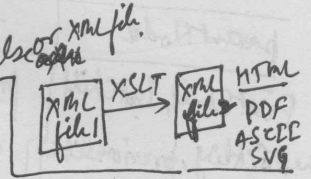 or XML file.
XML
file1
XSLT
XML
file
HTML
PDF
ASCII
SVG